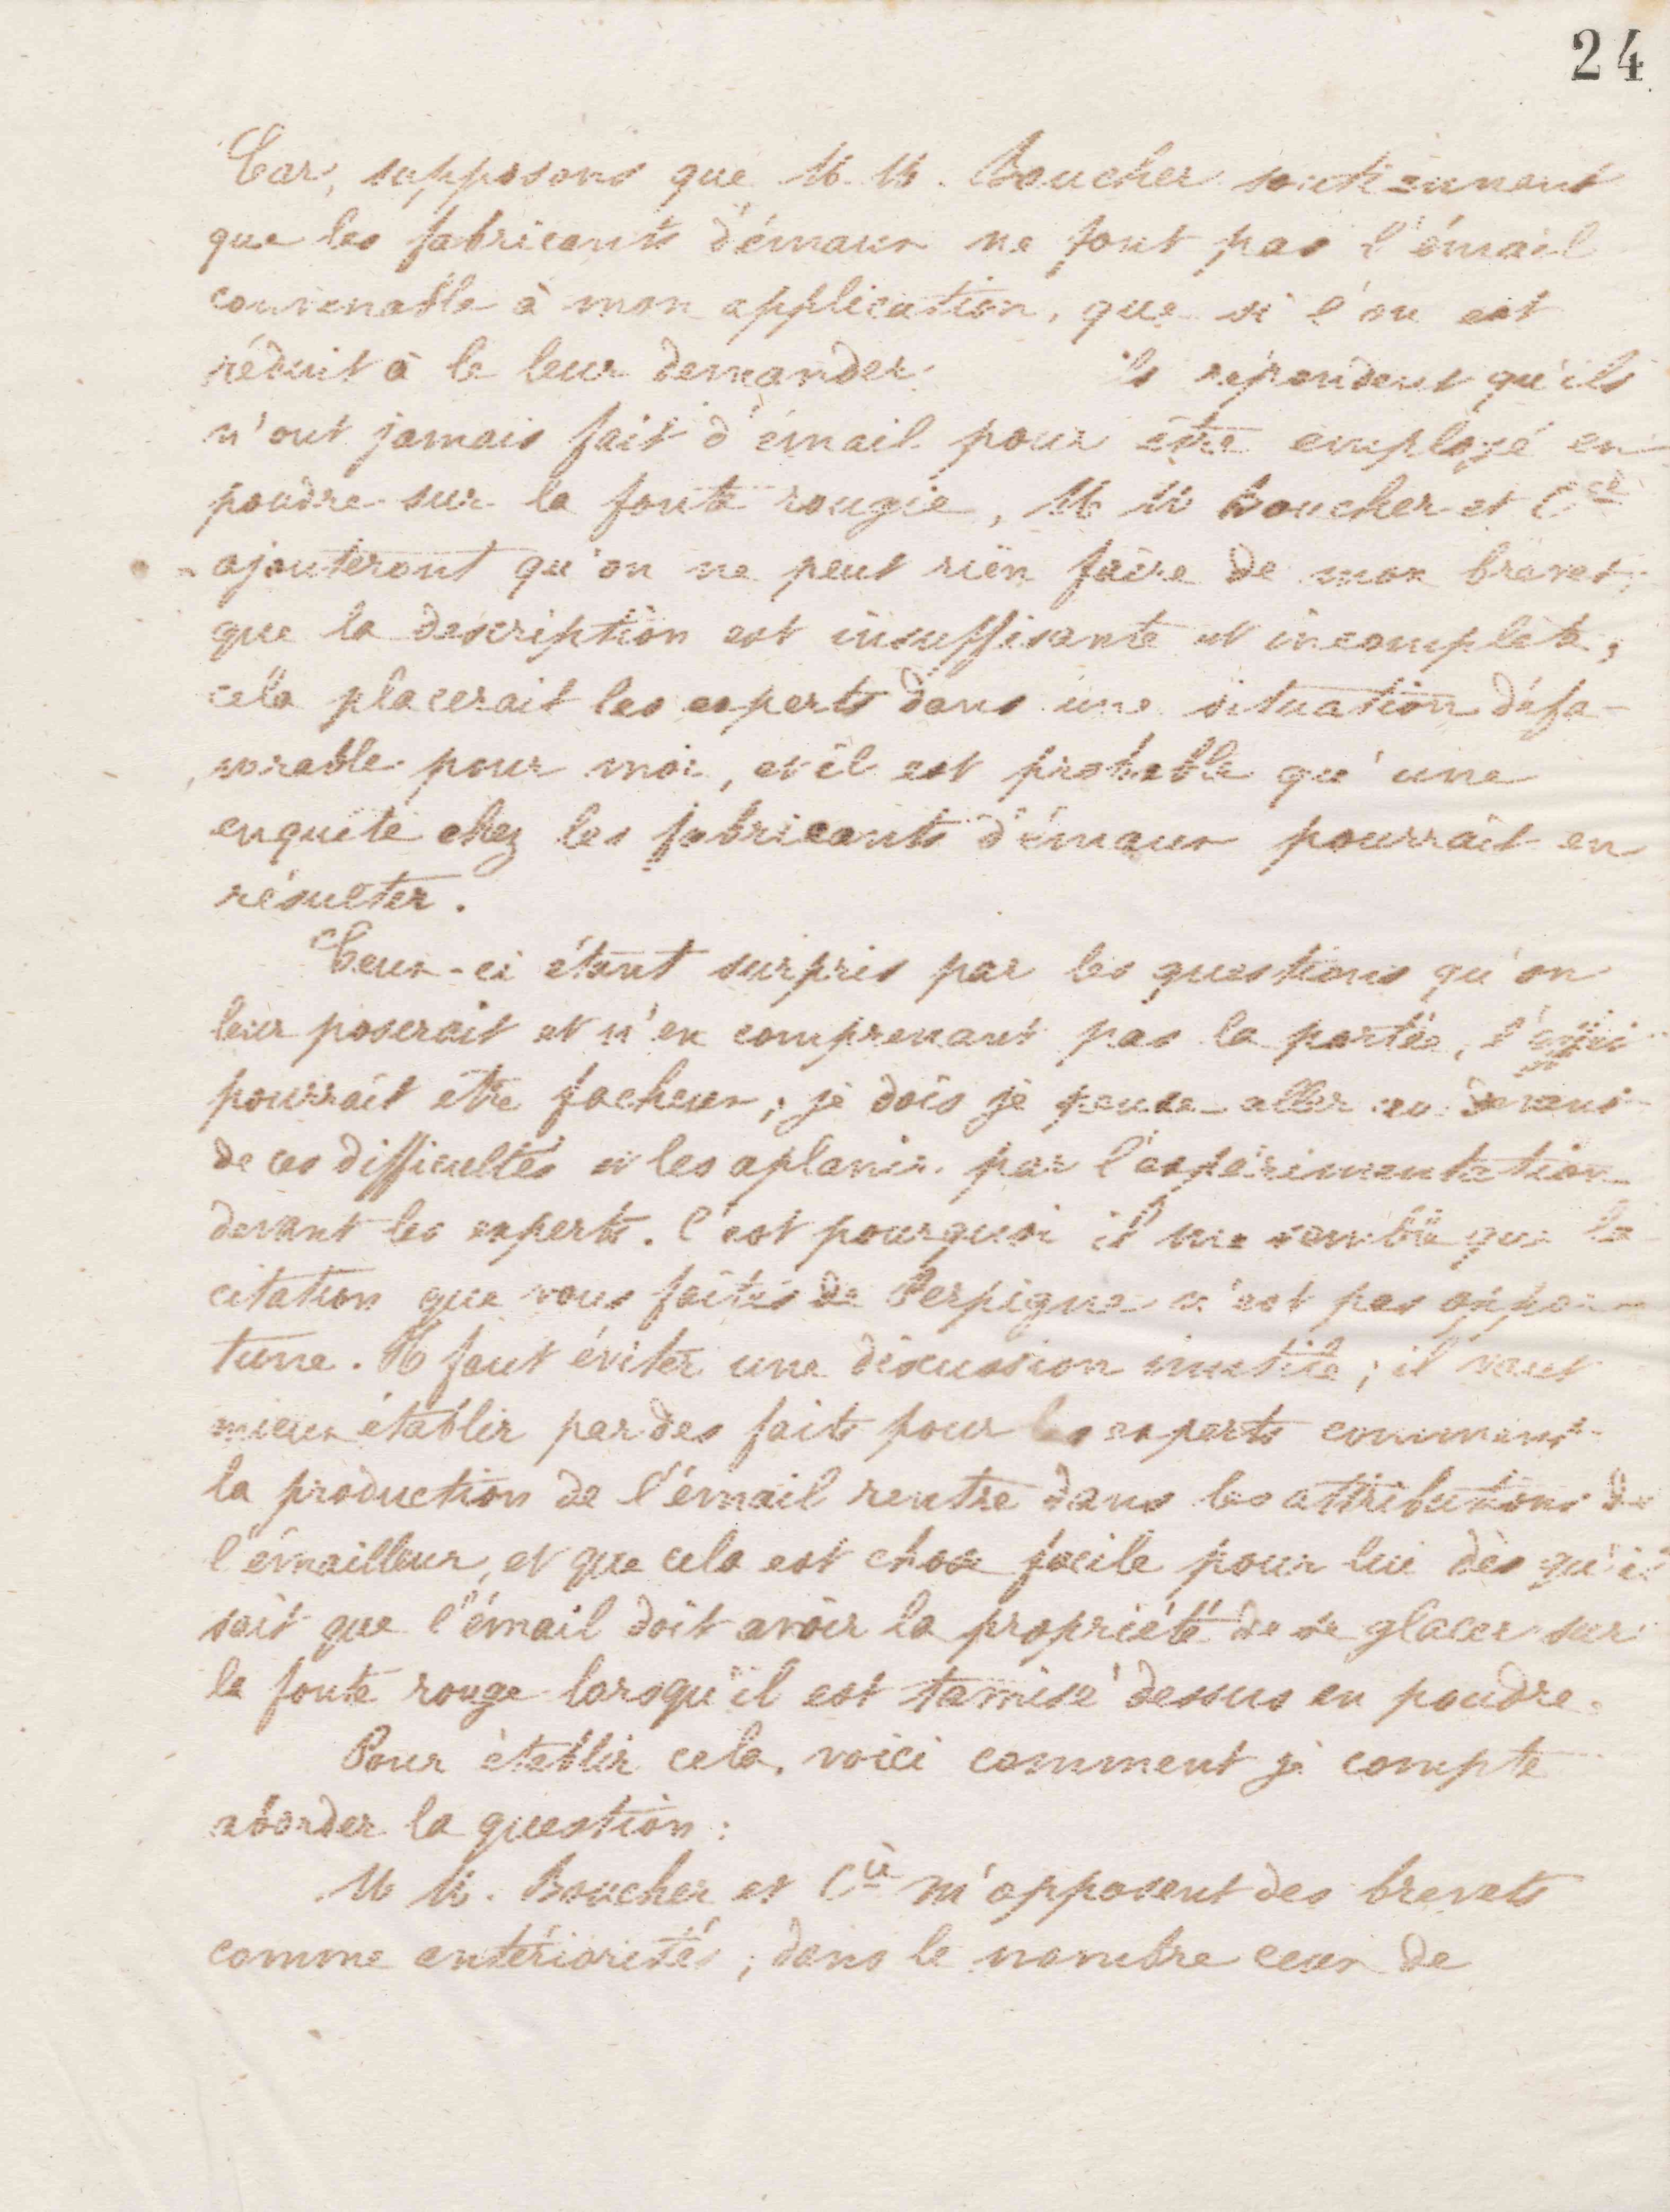 24
Car, supposons que M. M. Boucher soutiennent
que les fabricants d'émaux ne font pas l'émail
convenable à mon application, que si l'on est
réduit à le leur demander ils répondent qu'ils
n'ont jamais fait d'émail pour être employé en
poudre sur la fonte rougie, M M Boucher et Cie
ajouteront qu'on ne peut rien faire de mon brevet,
que la description est insuffisante et incomplète,
cela placerait les experts dans une situation défa-
vorable pour moi, et il est probable qu'une
enquête chez les fabricants d'émaux pourrait en
résulter.
Ceux-ci étant surpris par les questions qu'on
leur poserait et n'en comprenant pas la portée,
pourrait être facheux; je dois je pense aller au devant
de ces difficultés et les aplanir par l'expérimentation
devant les experts. C'est pourquoi il me semble que la
citation que vous faites de Perpigna n'est pas oppor-
tune. Il faut éviter une discussion inutile; il vaut
mieux établir par des faits pour les experts comment
la production de l'émail rentre dans les attributions de
l'émailleur, et que cela est chose facile pour lui dès qu'il
sait que l'émail doit avoir la propriété de se glacer sur
la fonte rouge lorsqu'il est tamisé dessus en poudre.
Pour établir cela, voici comment je compte
aborder la question:
M M. Boucher et Cie m'opposent des brevets
comme antériorités; dans le nombre ceux de